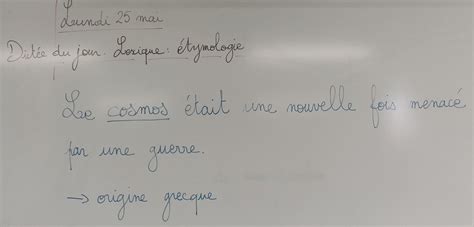 Lundi 25 mai
Dictée du jour. Lexique : étymologie
Le cosmos était une nouvelle fois menacé
par une guerre.
→ origine grecque